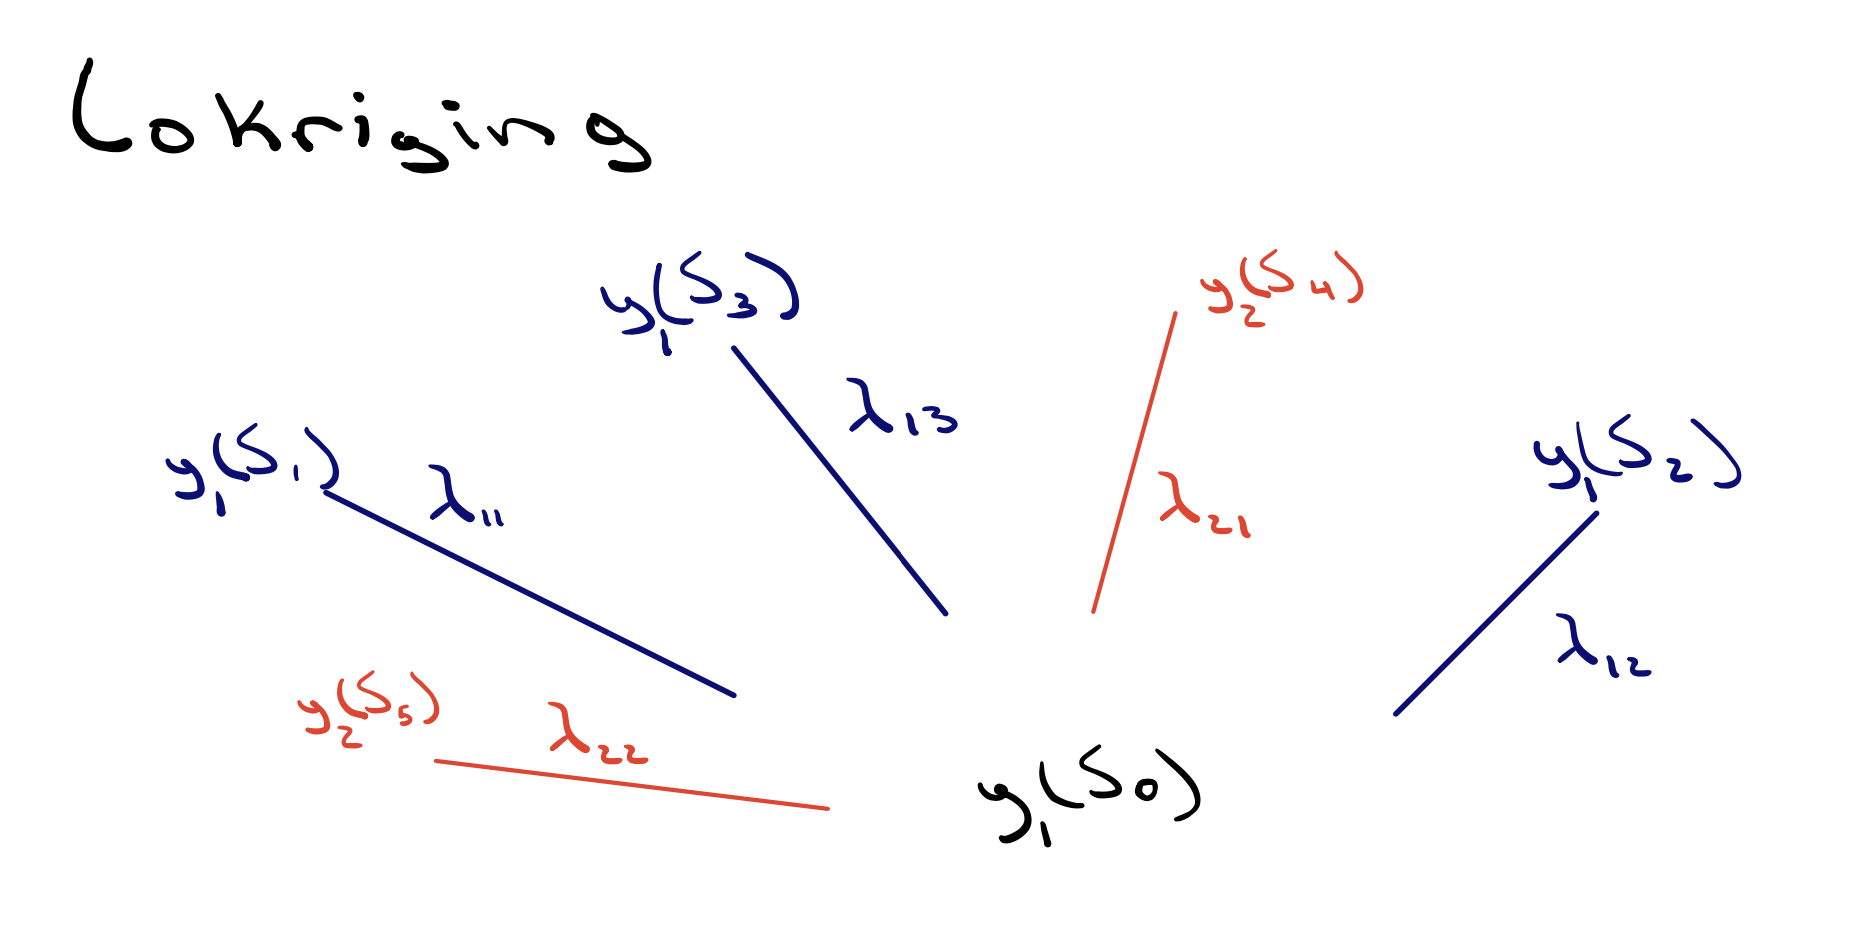 Cokriging
y₁(S₃)
y₂(S₄)
λ₁₃
y₁(S₁)
λ₁₁
y₁(S₂)
λ₂₁
λ₁₂
y₂(S₅)
λ₂₂
y₁(S₀)